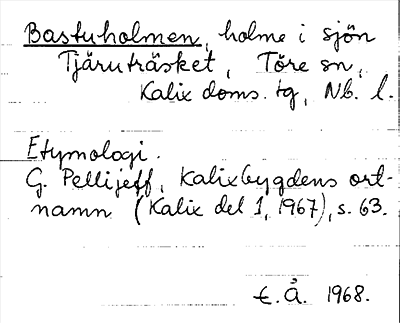 Bastuholmen, holme i sjön
Tjåruträsket, Töre sn,
Kalix doms. tg, Nb. l.
Etymologi.
G. Pellijeff, Kalixbygdens ort-
namn (Kalix del 1, 1967), s. 63.
E. Å. 1968.